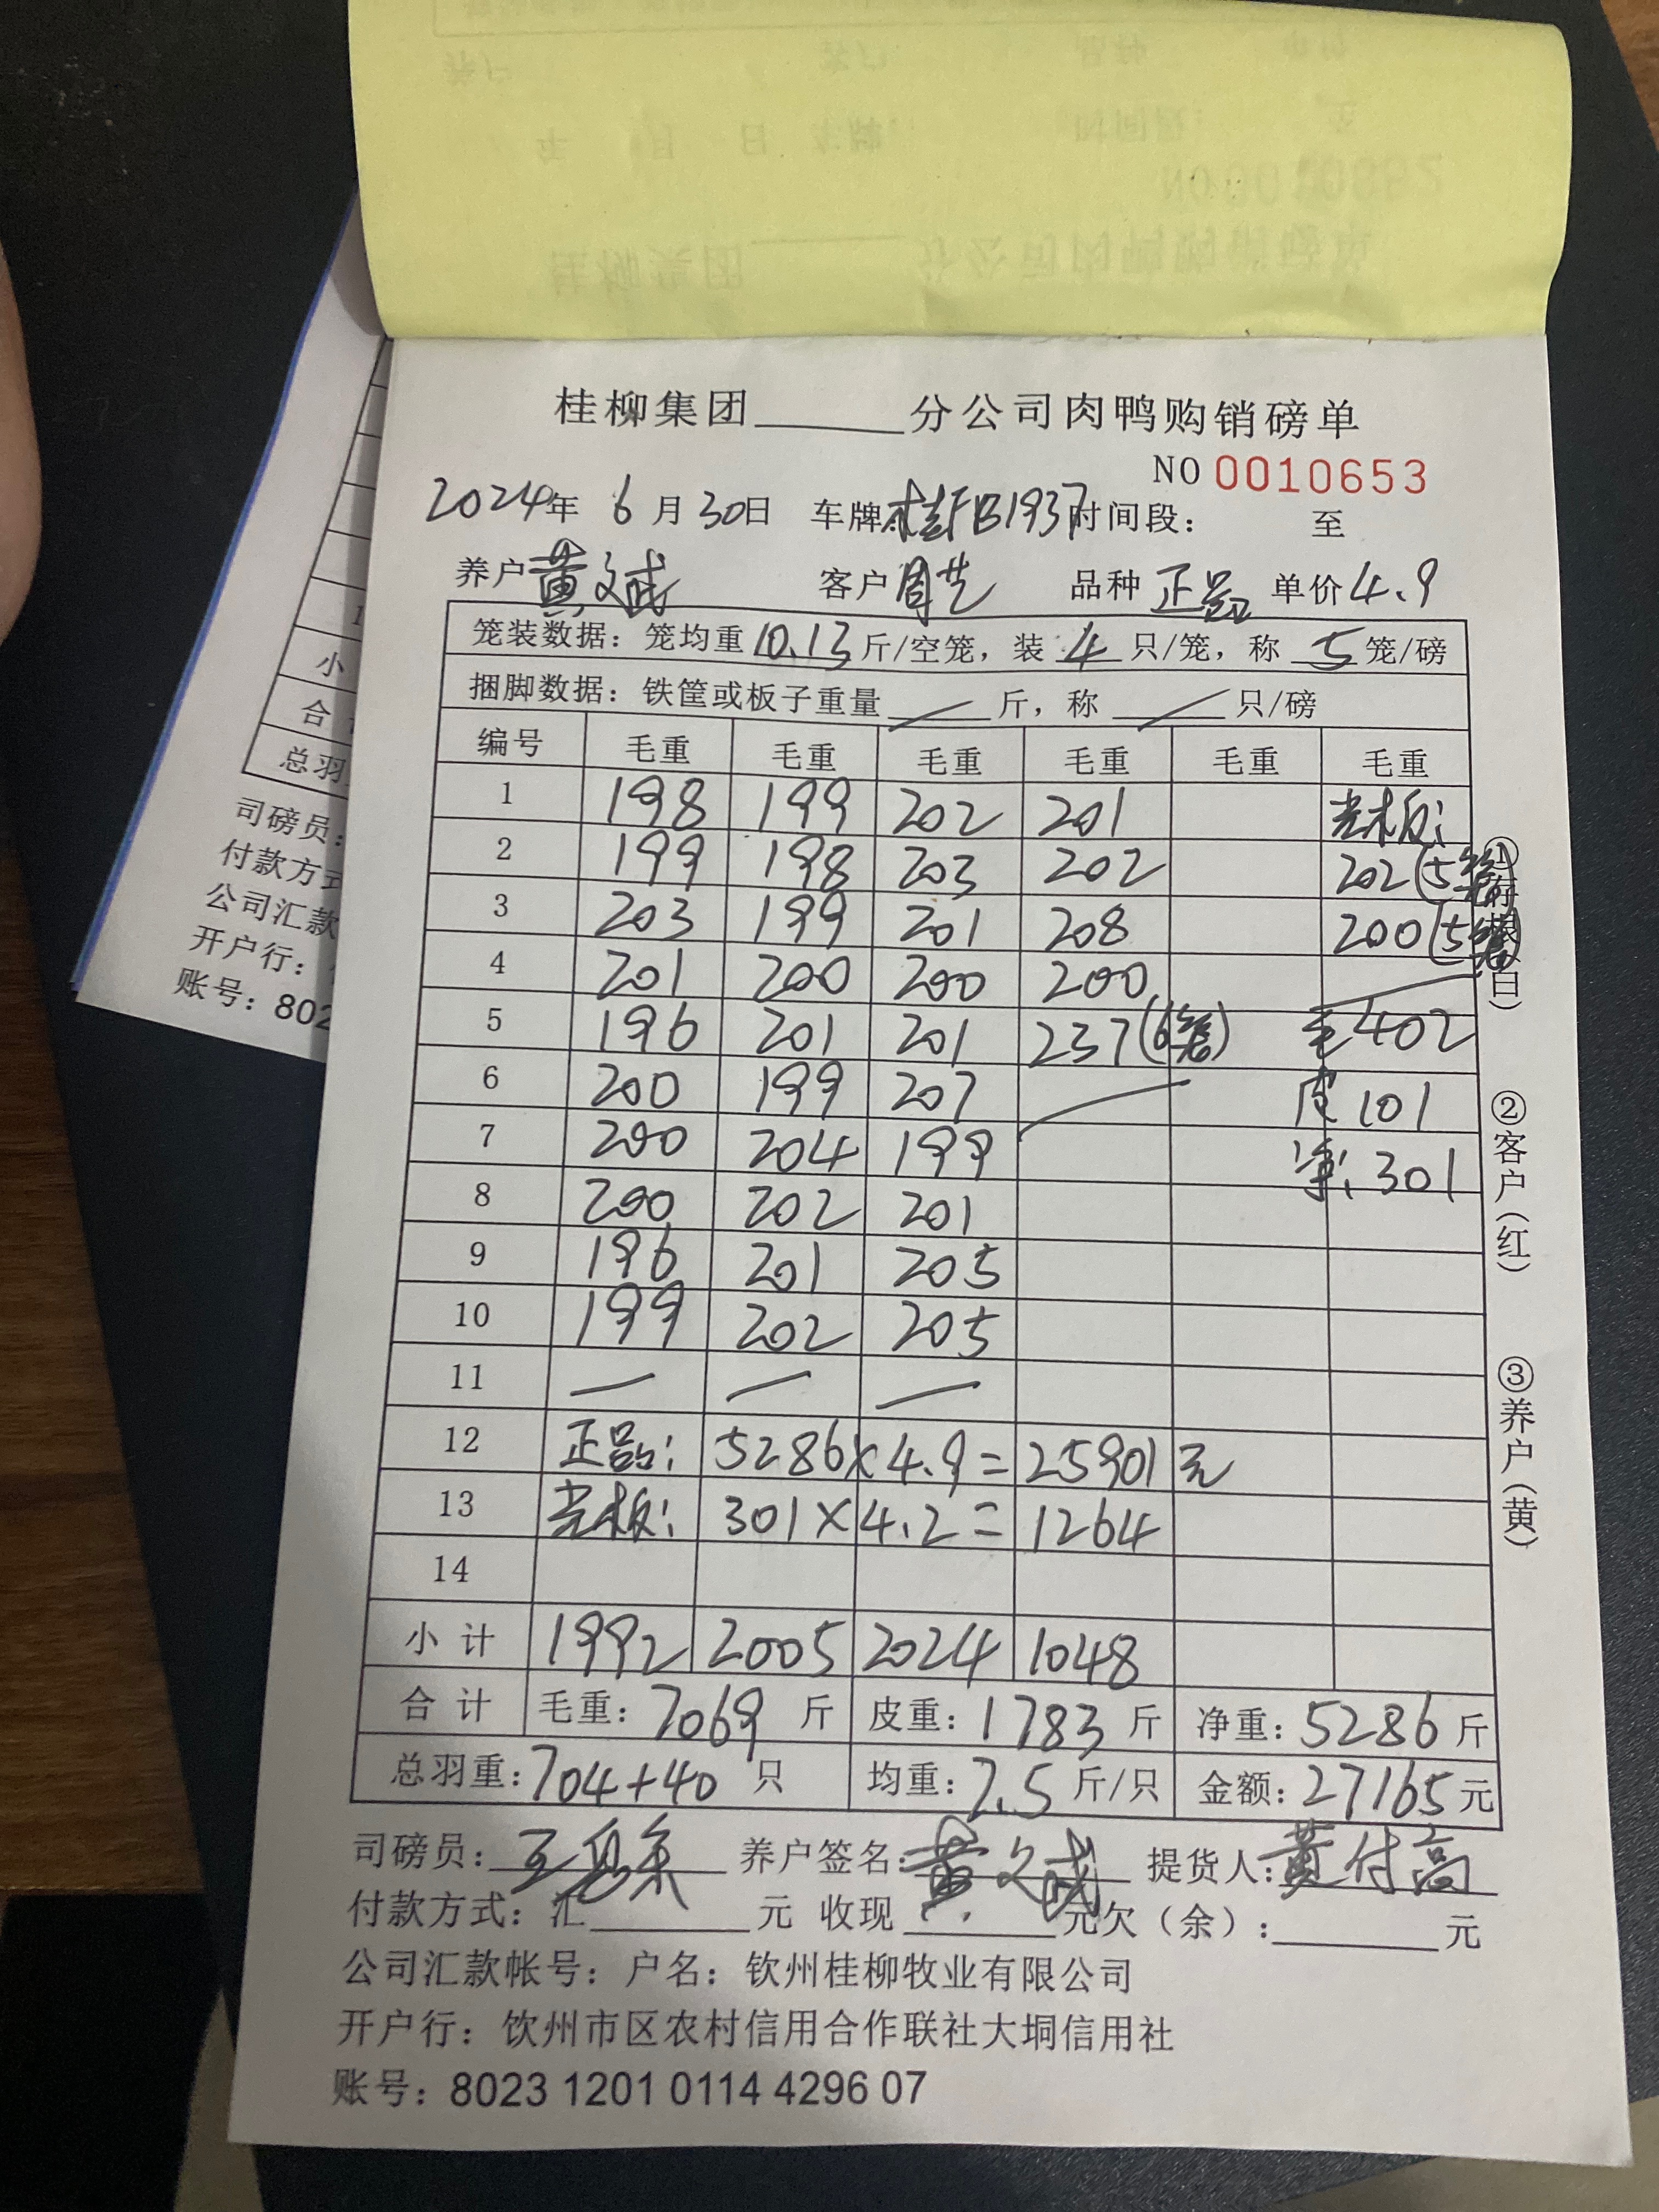 桂柳集团______分公司肉鸭购销磅单
NO 0010653
2024年 6月30日 车牌:桂FB1937 时间段: 至
养户 黄文成 客户 周艺 品种 正品 单价 4.9
笼装数据: 笼均重 10.13 斤/空笼, 装 4 只/笼, 称 5 笼/磅
捆脚数据: 铁筐或板子重量 / 斤, 称 / 只/磅
编号 毛重 毛重 毛重 毛重 毛重 毛重
1 198 199 202 201 光板:
2 199 198 203 202 202(5笼)
3 203 199 201 208 200(5笼)
4 201 200 200 200
5 196 201 201 237(6笼) 毛402
6 200 199 207 皮101
7 200 204 199 净:301
8 200 202 201
9 196 201 205
10 199 202 205
11 — — —
12 正品: 5286×4.9=25901元
13 光板: 301×4.2=1264
14
小计 1992 2005 2024 1048
合计 毛重: 7069 斤 皮重: 1783 斤 净重: 5286 斤
总羽重: 704+40 只 均重: 7.5 斤/只 金额: 27165 元
司磅员: 养户签名: 黄文成 提货人: 黄付高
付款方式: 汇______元 收现______元欠(余):______元
公司汇款帐号: 户名: 钦州桂柳牧业有限公司
开户行: 钦州市区农村信用合作联社大垌信用社
账号: 8023 1201 0114 4296 07
①存根(白)
②客户(红)
③养户(黄)
小
合
总羽
司磅员:
付款方式
公司汇款
开户行:
账号: 802